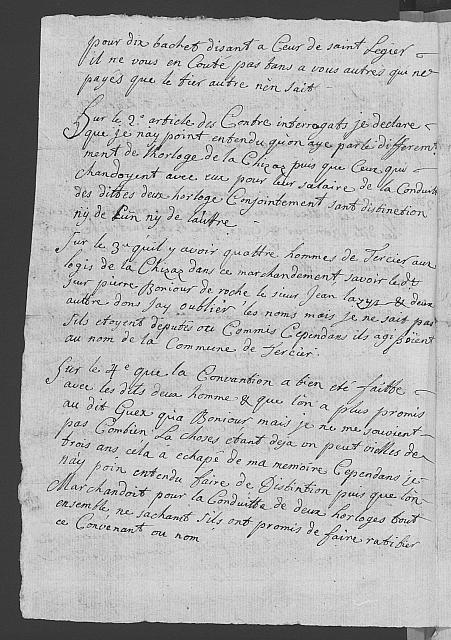 pour dix bachet disant a Ceux de saint Legier
il ne vous en Coute pas tans a vous autres qui ne
payés que le tier autre n'en sait
Sur le 2e article des Contre interrogats je declare
que je n'ay point entendu qu'on aye parlé differem
ment de l'horloge de la Chiaz puis que Ceux qui
chandoyent avec eux pour leur salaire de la Conduite
des dittes deux horloge Conjointement sant distinction
ny de l'un ny de l'autre
Sur le 3e qu'il y avoir quattre hommes de Tercier aux
logis de la Chiaz dans ce marchandement savoir ledt
Sieur pierre Bonjour de roche le sieur Jean & deux
autre dons j'ay oublier les noms mais je ne sait pas
s'ils etoyent deputés ou Commis Cependans ils agissoient
au nom de la Commune de Tercier.
Sur le 4e que la Convantion a bien eté faitte
avec les dits deux homme & que l'on a plus promis
au dit Guex qu'a Bonjour mais je ne me souvient
pas Combien La choses etant deja un peut vielles de
trois ans cela a echapé de ma memoire Cependans je
n'ay poin entendu faire de Distintion puis que l'on
Marchandoit pour la Conduitte de deux horloges tout
ensemble, ne sachant s'ils ont promis de faire ratifier
ce Convenant ou nom